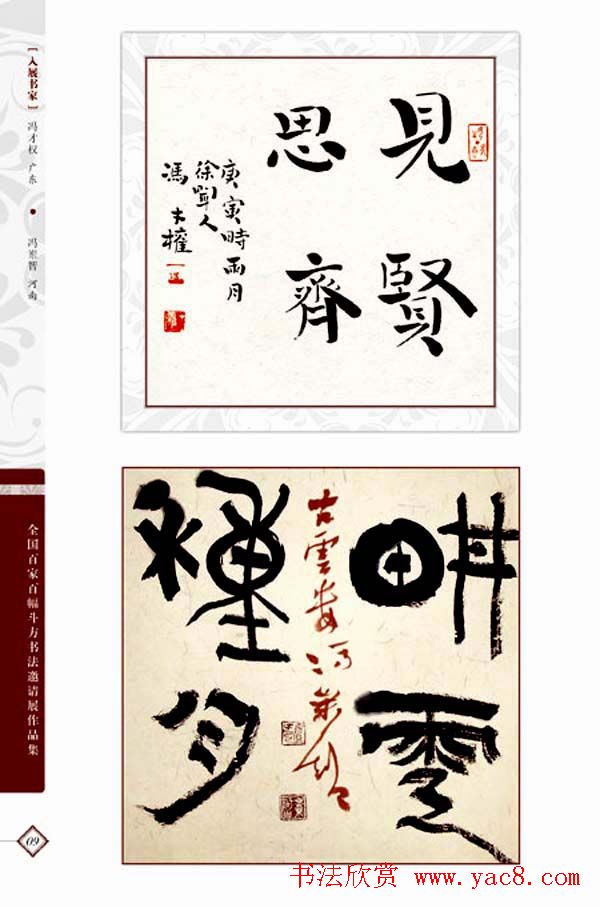 [入展书家] 冯才权 广东 • 冯崇智 河南
全国百家百幅斗方书法邀请展作品集
09
見賢
思齊
庚寅時雨月
徐聞人
馮才權
畊雲
種月
古雲安馮崇智
书法欣赏 www.yac8.com